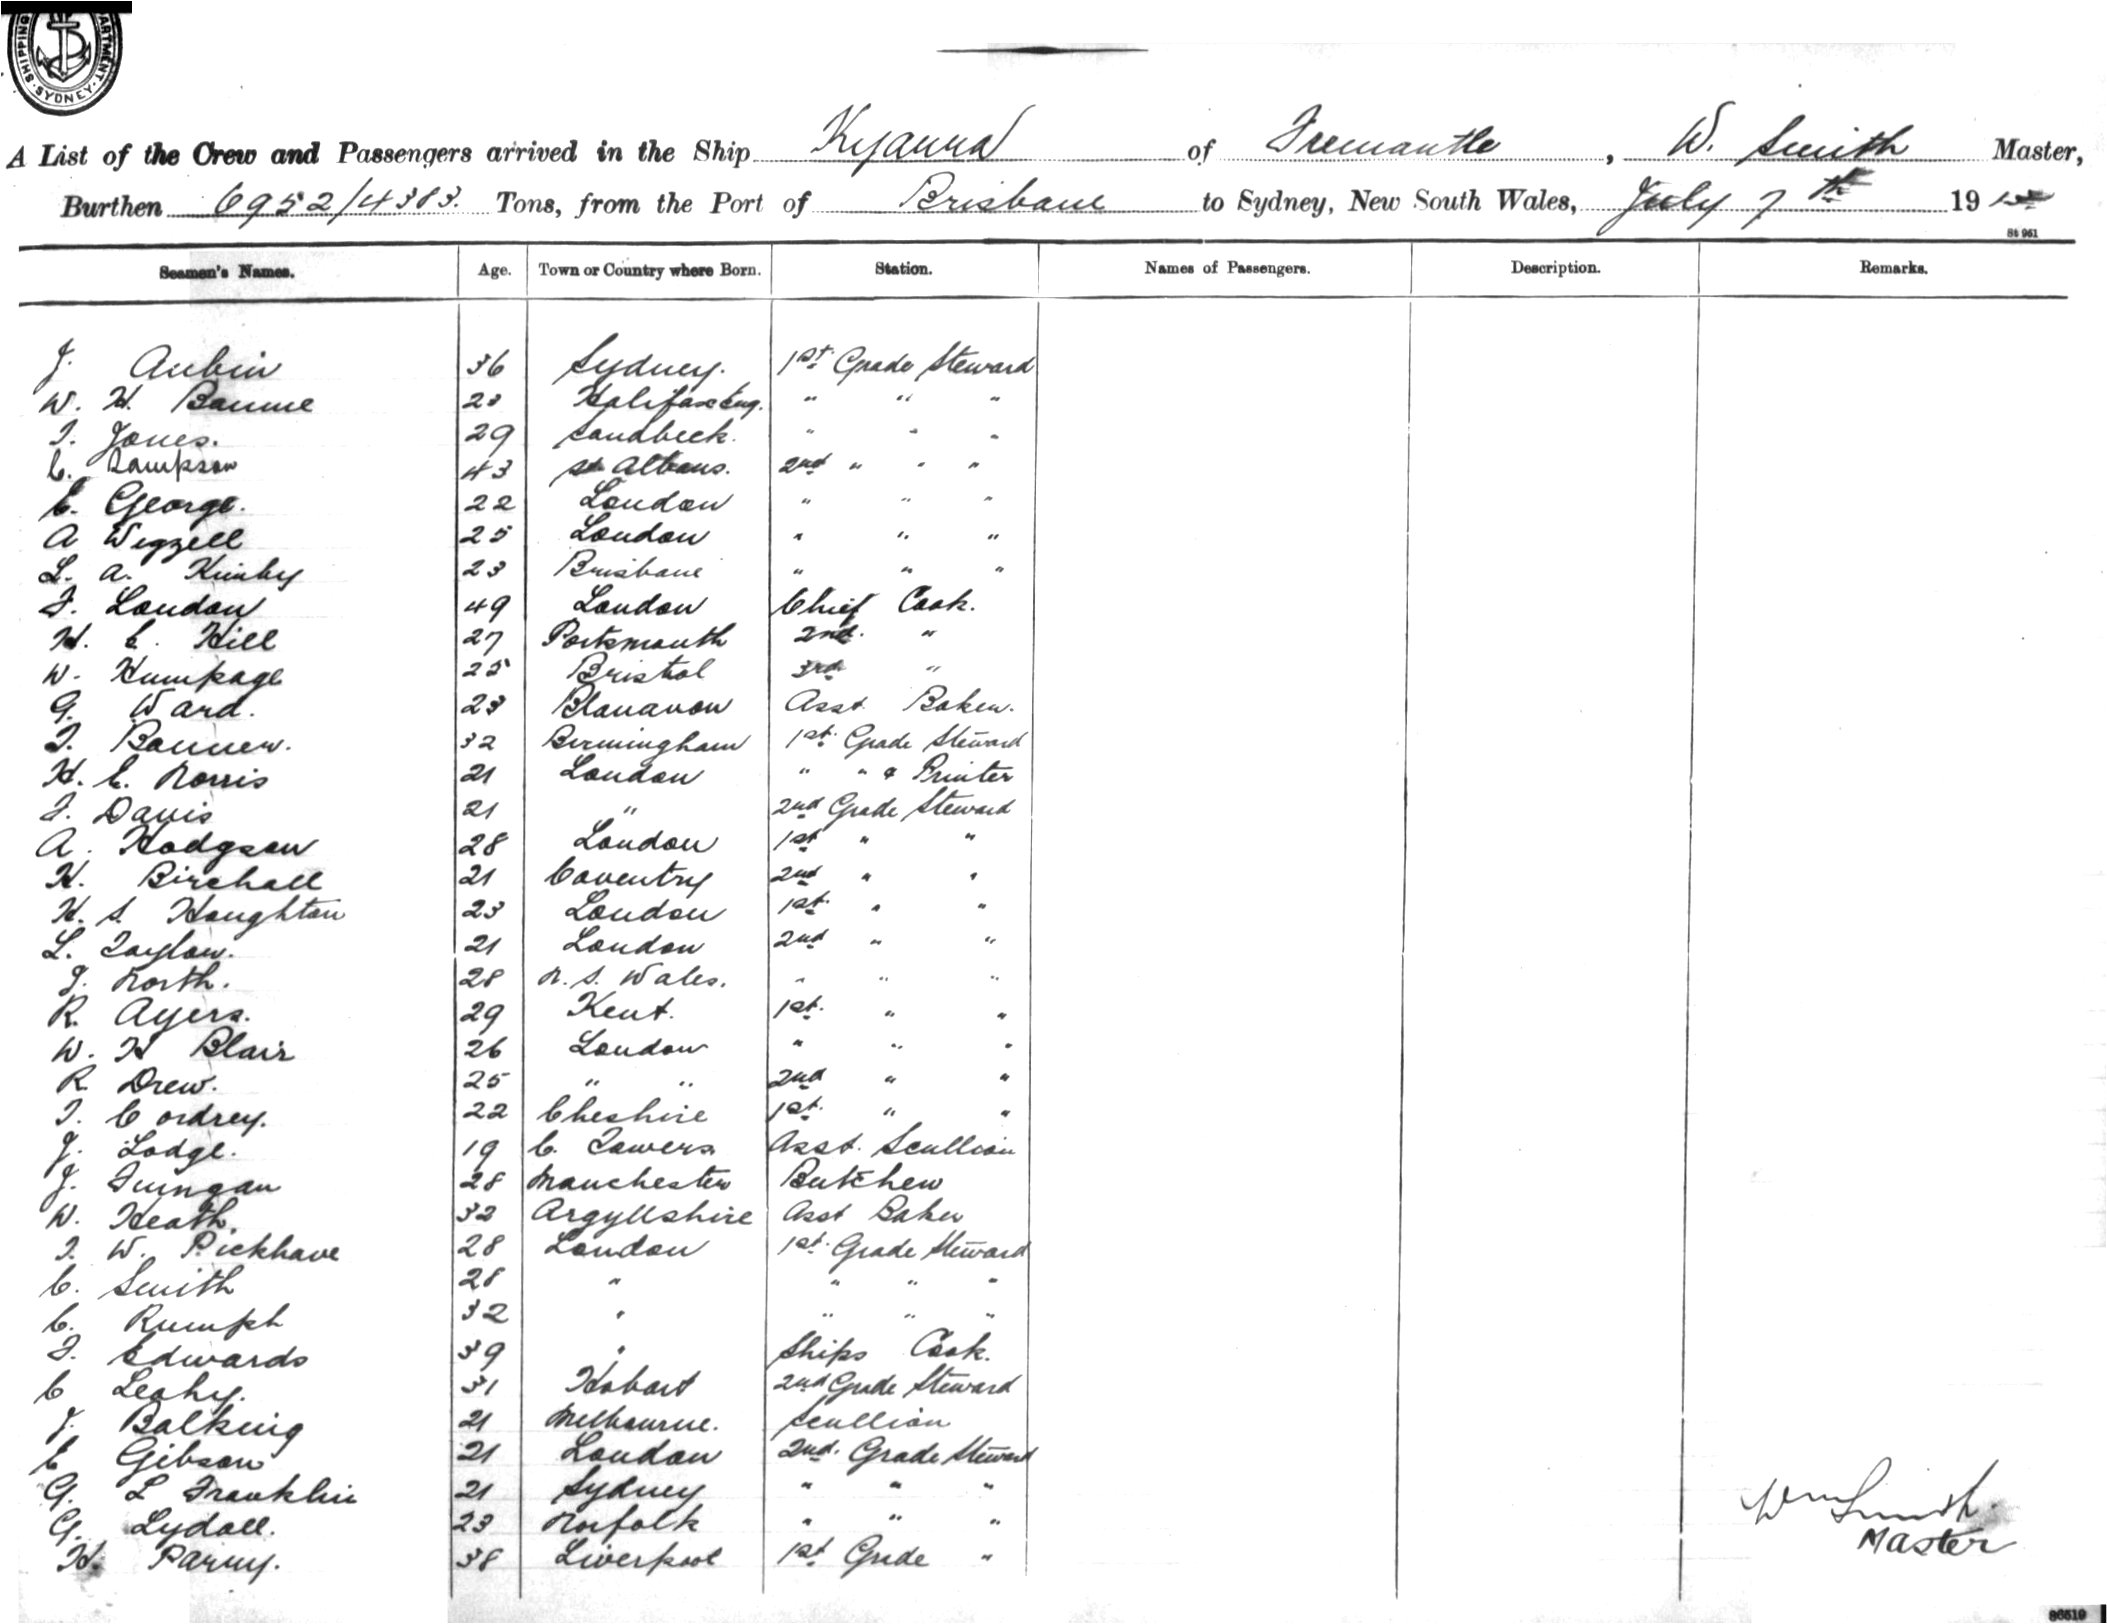 SHIPPING DEPARTMENT SYDNEY
A List of the Crew and Passengers arrived in the Ship Kyarra of Fremantle, W. Smith Master,
Burthen 6952/4383. Tons, from the Port of Brisbane to Sydney, New South Wales, July 7th 191
86 961
Seamen's Names. Age. Town or Country where Born. Station. Names of Passengers. Description. Remarks.
J. Aubin 36 Sydney. 1st Grade Steward
W. H. Baume 23 Halifax Eng. " " "
T. Jones. 29 Sandbeck. " " "
C. Sampson 43 St Albans. 2nd " " "
C. George. 22 London " " "
A Wigzell 25 London " " "
L. A. Kimby 23 Brisbane " " "
F. London 49 London Chief Cook.
H. C. Hill 27 Portsmouth 2nd. "
W. Humpage 25 Bristol 3rd "
G. Ward. 23 Blanavon Asst Baker.
T. Bonner. 32 Birmingham 1st Grade Steward
H. C. Norris 21 London " " & Printer
F. Davis 21 " 2nd Grade Steward
A. Hodgson 28 London 1st " "
H. Birchall 21 Coventry 2nd " "
H. S. Houghton 23 London 1st " "
L. Taylor. 21 London 2nd " "
J. North. 28 N. S. Wales. " " "
R. Ayers. 29 Kent. 1st. " "
W. H Blair 26 London " " "
R Drew. 25 " " 2nd " "
T. Cordrey. 22 Cheshire 1st. " "
J. Lodge. 19 C. Towers Asst. Scullion
J. Finngan 28 Manchester Butcher
W. Heath. 32 Argyllshire Asst Baker
T. W. Pickhave 28 London 1st. Grade Steward
C. Smith 28 " " " "
C. Rumph 32 " " " "
F. Edwards 39 " Ships Cook.
C Leahy. 31 Hobart 2nd Grade Steward
J. Balking 21 Melbourne. Scullion
C Gibson 21 London 2nd. Grade Steward
G. L Franklin 21 Sydney " " "
G. Lydall. 23 Norfolk " " "
H. Parry. 38 Liverpool 1st Grade "
Wm Smith.
Master
86519